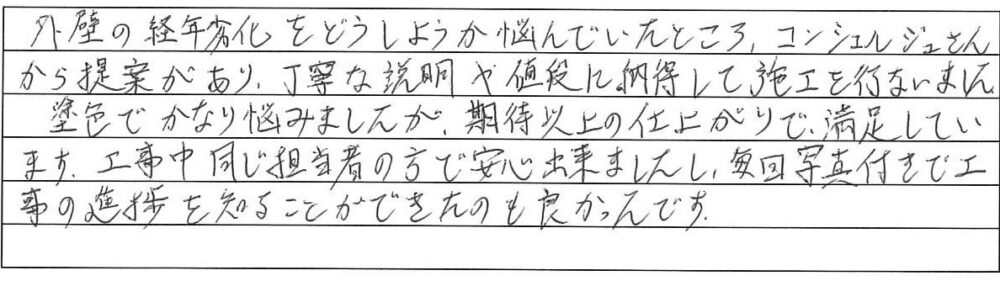 外壁の経年劣化をどうしようか悩んでいたところ、コンシェルジュさん
から提案があり、丁寧な説明や値段に納得して施工を行ないました
塗色でかなり悩みましたが、期待以上の仕上がりで、満足してい
ます。工事中同じ担当者の方で安心出来ましたし、毎回写真付きで工
事の進捗を知ることができたのも良かったんです。